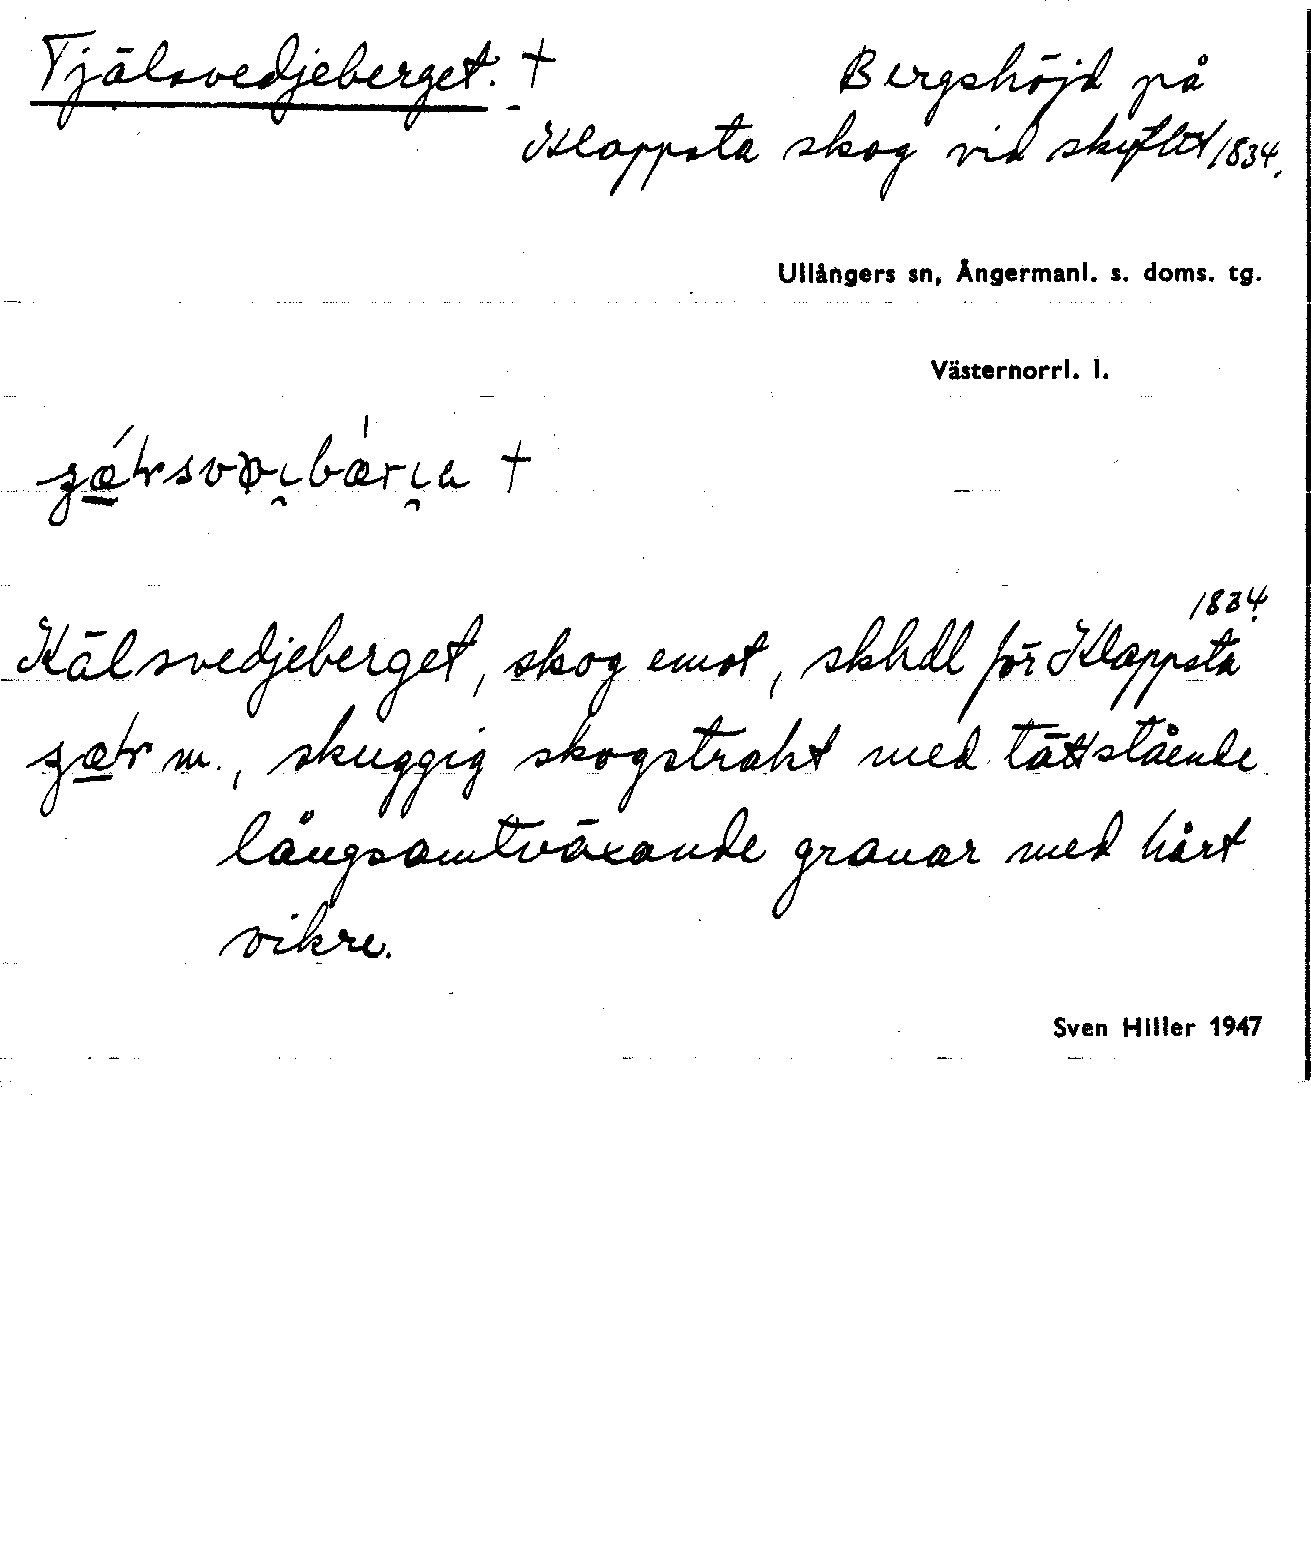 Tjälsvedjeberget. †
Bergshöjd på
Klappsta skog vid skiftet 1834.
Ullångers sn, Ångermanl. s. doms. tg.
Västernorrl. l.
†
1834.
Kälsvedjeberget, skog emot, skhdl för Klappsta
m., skuggig skogstrakt med tättstående
långsamtväxande granar med hårt
vikre.
Sven Hiller 1947